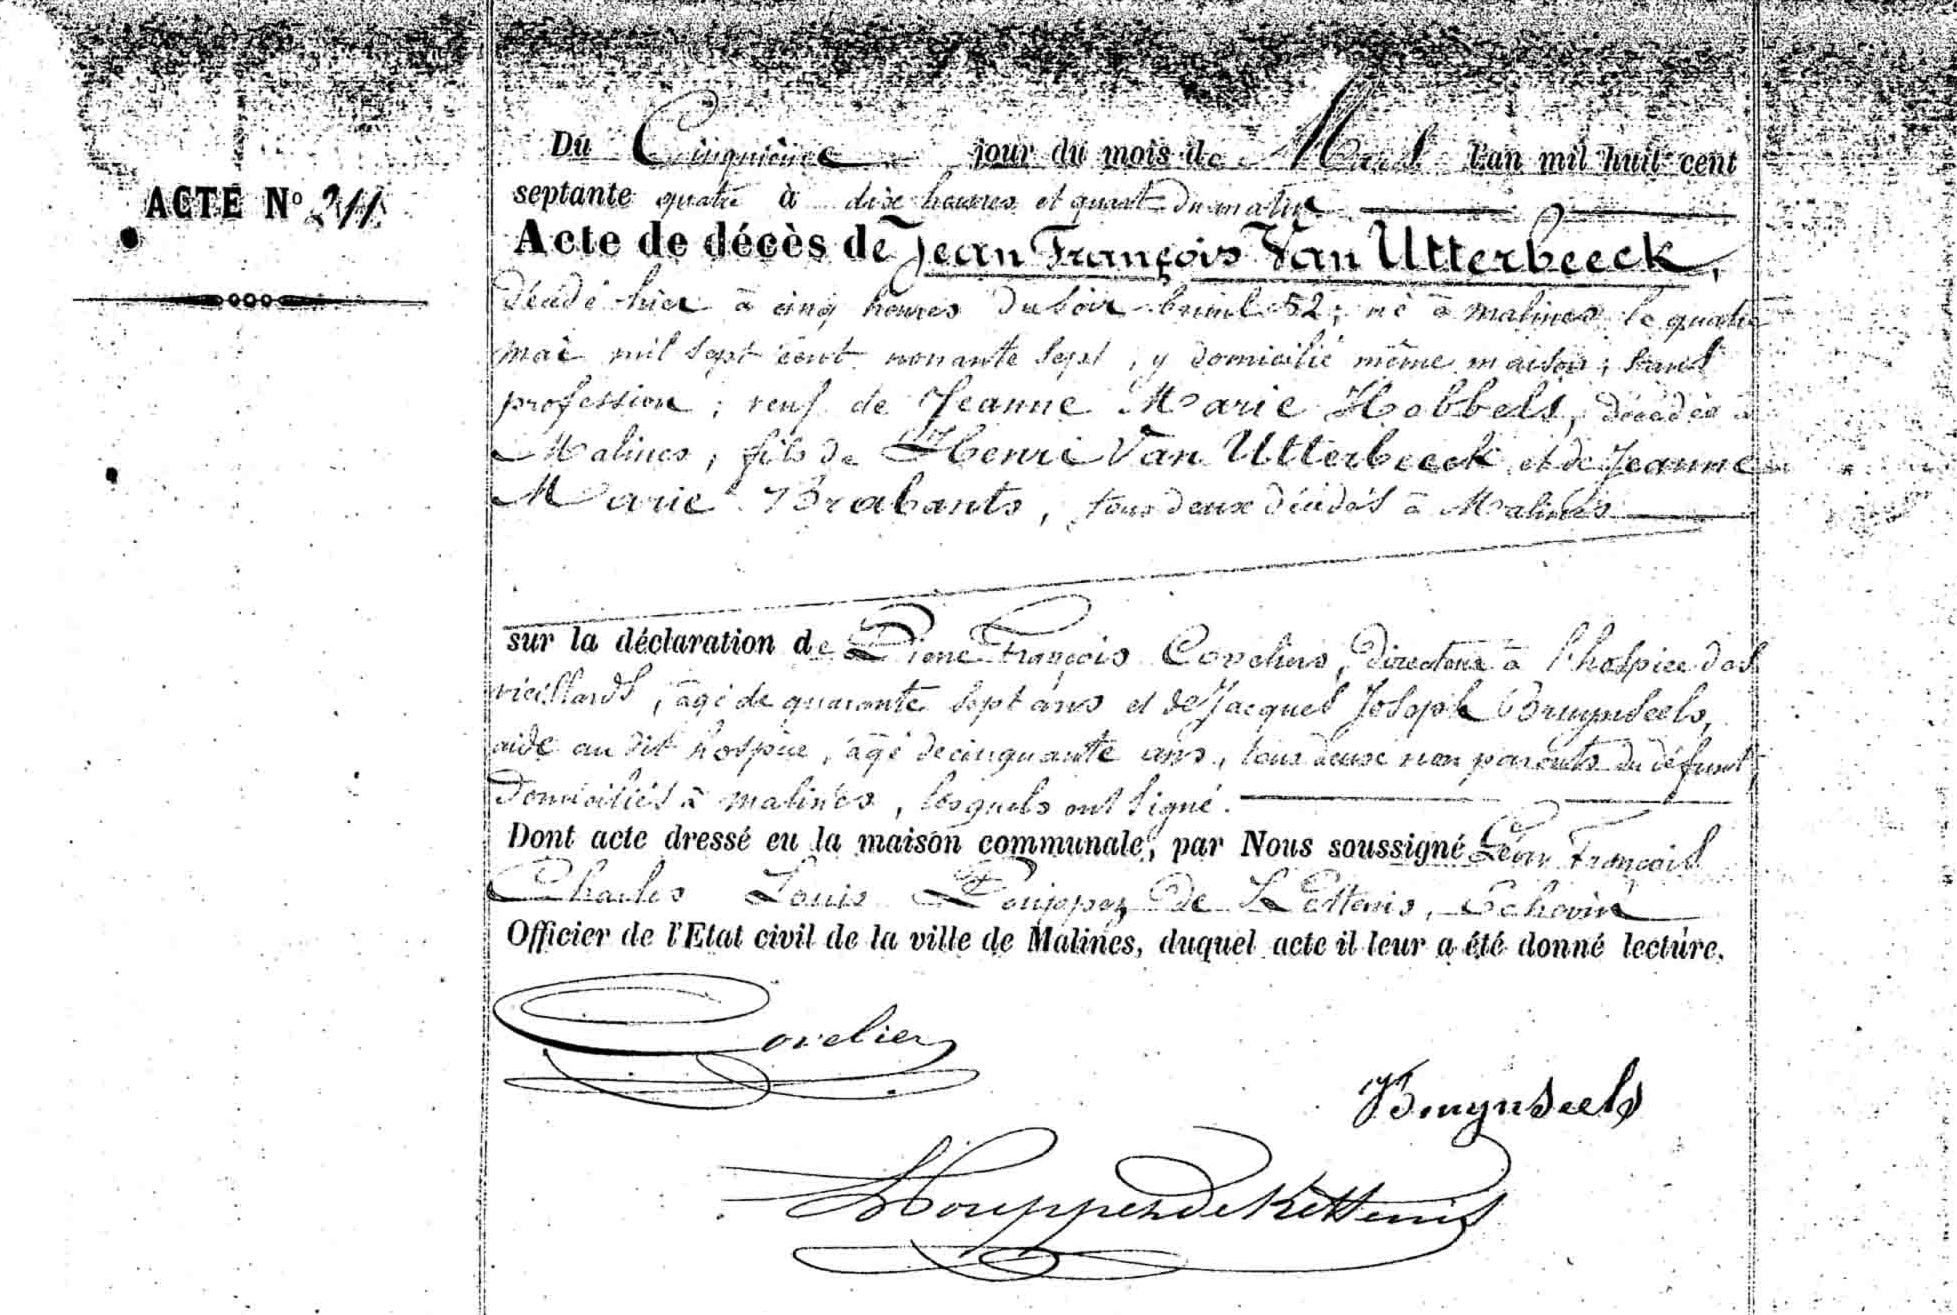 Du Cinquième jour du mois de Mars l'an mil huit cent
ACTE No 211
septante quatre à dix heures et quart du matin
Acte de décès de Jean François Van Utterbeeck,
décédé hier à cinq heures du soir 52; né à Malines le quatre
mai mil sept cent nonante sept, y domicilié même maison; sans
profession; veuf de Jeanne Marie Hobbels, décédée à
Malines; fils de Henri Van Utterbeeck et de Jeanne
Marie Brabants, tous deux décédés à Malines
sur la déclaration de Pierre François Coveliers, directeur à l'hospice des
vieillards, âgé de quarante sept ans et de Jacques Joseph Bruynseels,
aide au dit hospice, âgé de cinquante ans, tous deux non parents du défunt,
domiciliés à Malines, lesquels ont signé.
Dont acte dressé en la maison communale, par Nous soussigné Léon François
Charles Louis de Kettenis, Echevin
Officier de l'Etat civil de la ville de Malines, duquel acte il leur a été donné lecture.
Covelier
Bruynseels
de Kettenis